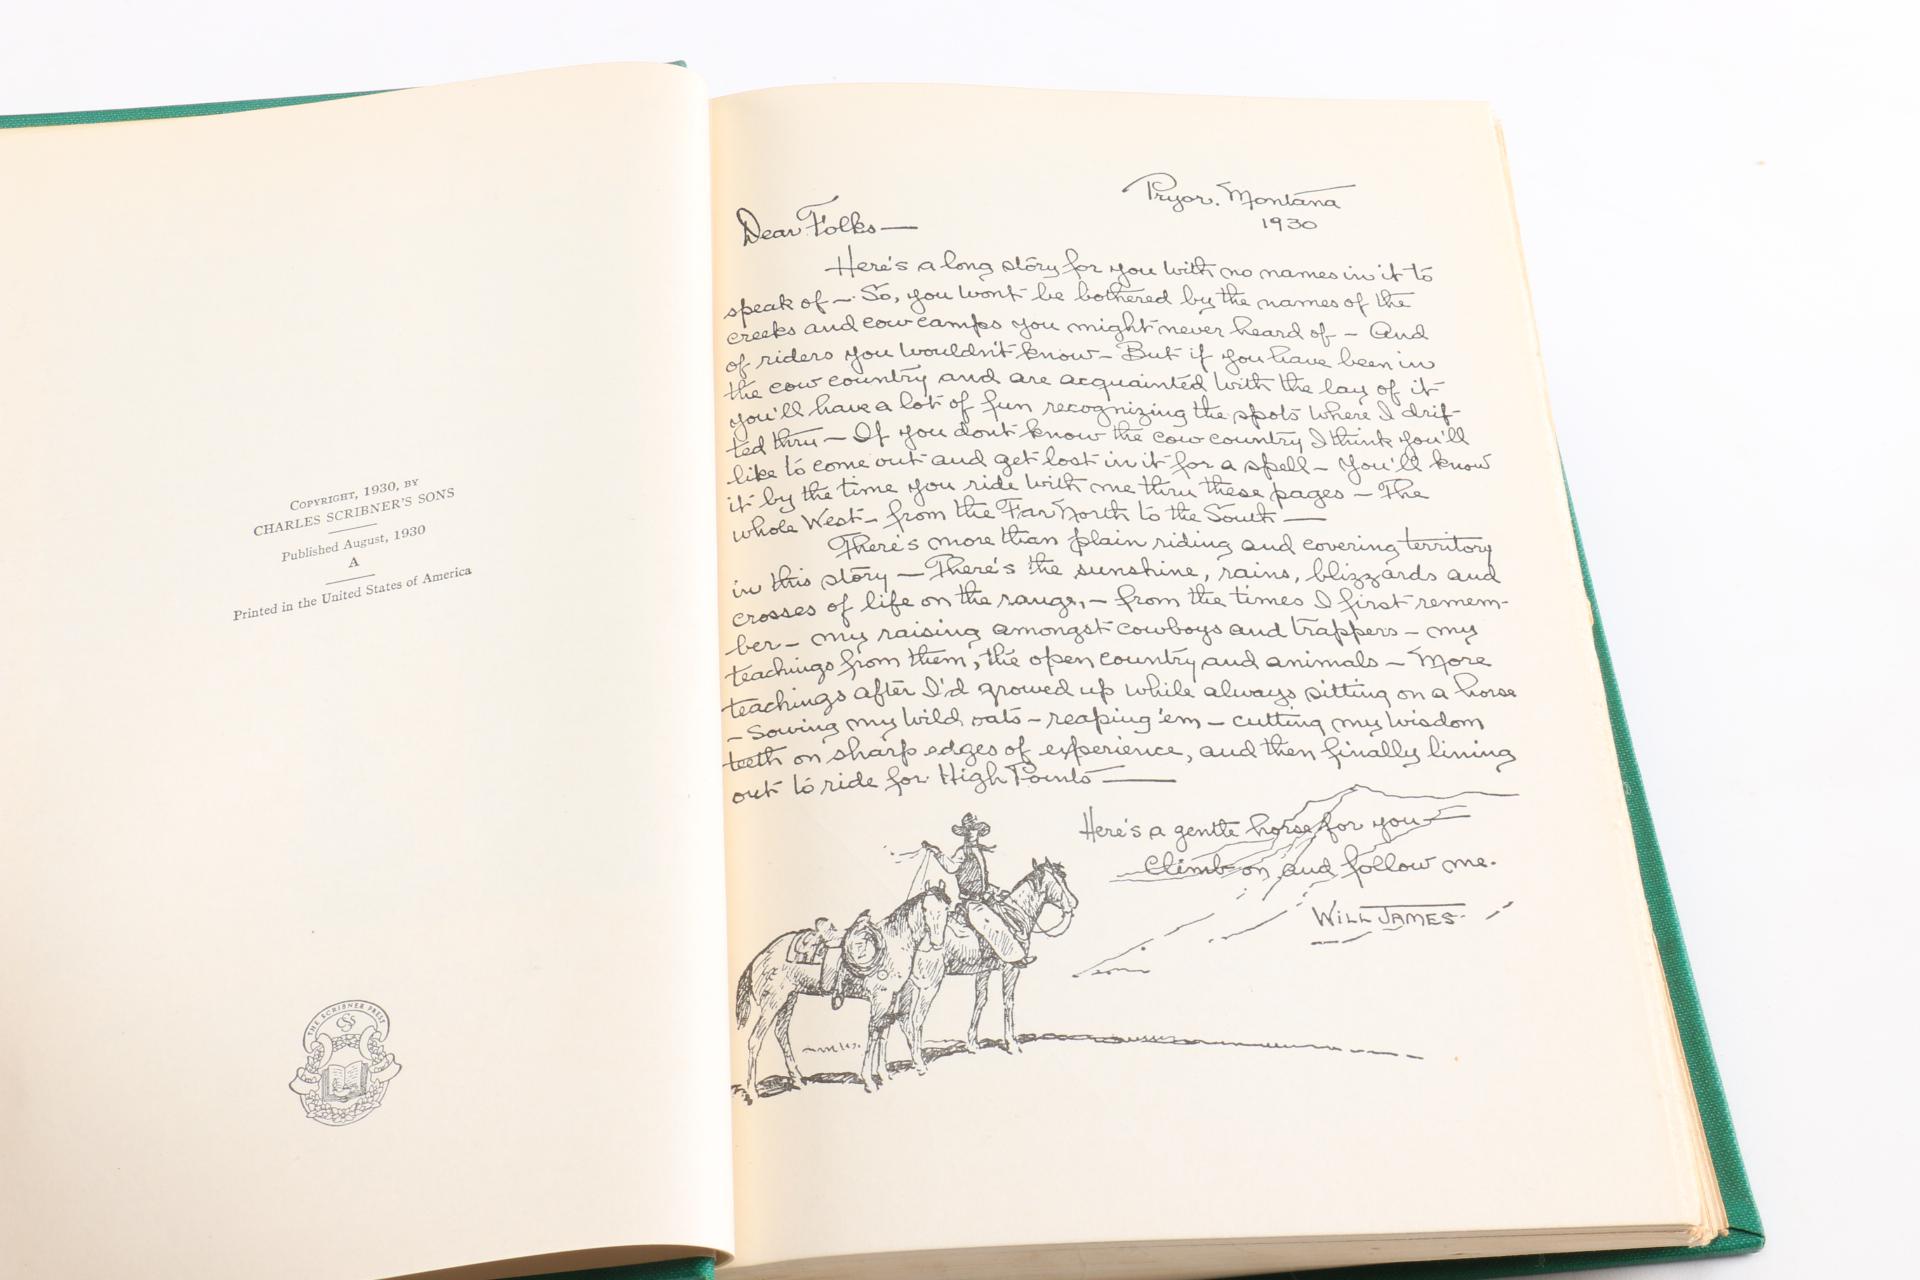 COPYRIGHT, 1930, BY
CHARLES SCRIBNER'S SONS
Published August, 1930
A
Printed in the United States of America
THE SCRIBNER PRESS
CSS
Pryor. Montana
1930
Dear Folks—
Here's a long story for you with no names in it to
speak of — So, you wont be bothered by the names of the
creeks and cow camps you might never heard of – And
of riders you wouldn't know – But if you have been in
the cow country and are acquainted with the lay of it
you'll have a lot of fun recognizing the spots where I drif-
ted thru – If you dont know the cow country I think you'll
like to come out and get lost in it for a spell – You'll know
it by the time you ride with me thru these pages – The
whole West – from the Far North to the South —
There's more than plain riding and covering territory
in this story – There's the sunshine, rains, blizzards and
crosses of life on the range, – from the times I first remem-
ber – my raising amongst cowboys and trappers – my
teachings from them, the open country and animals – More
teachings after I'd growed up while always sitting on a horse
– Sowing my wild oats – reaping 'em – cutting my wisdom
teeth on sharp edges of experience, and then finally lining
out to ride for High Points —
Here's a gentle horse for you –
Climb on and follow me.
WILL JAMES